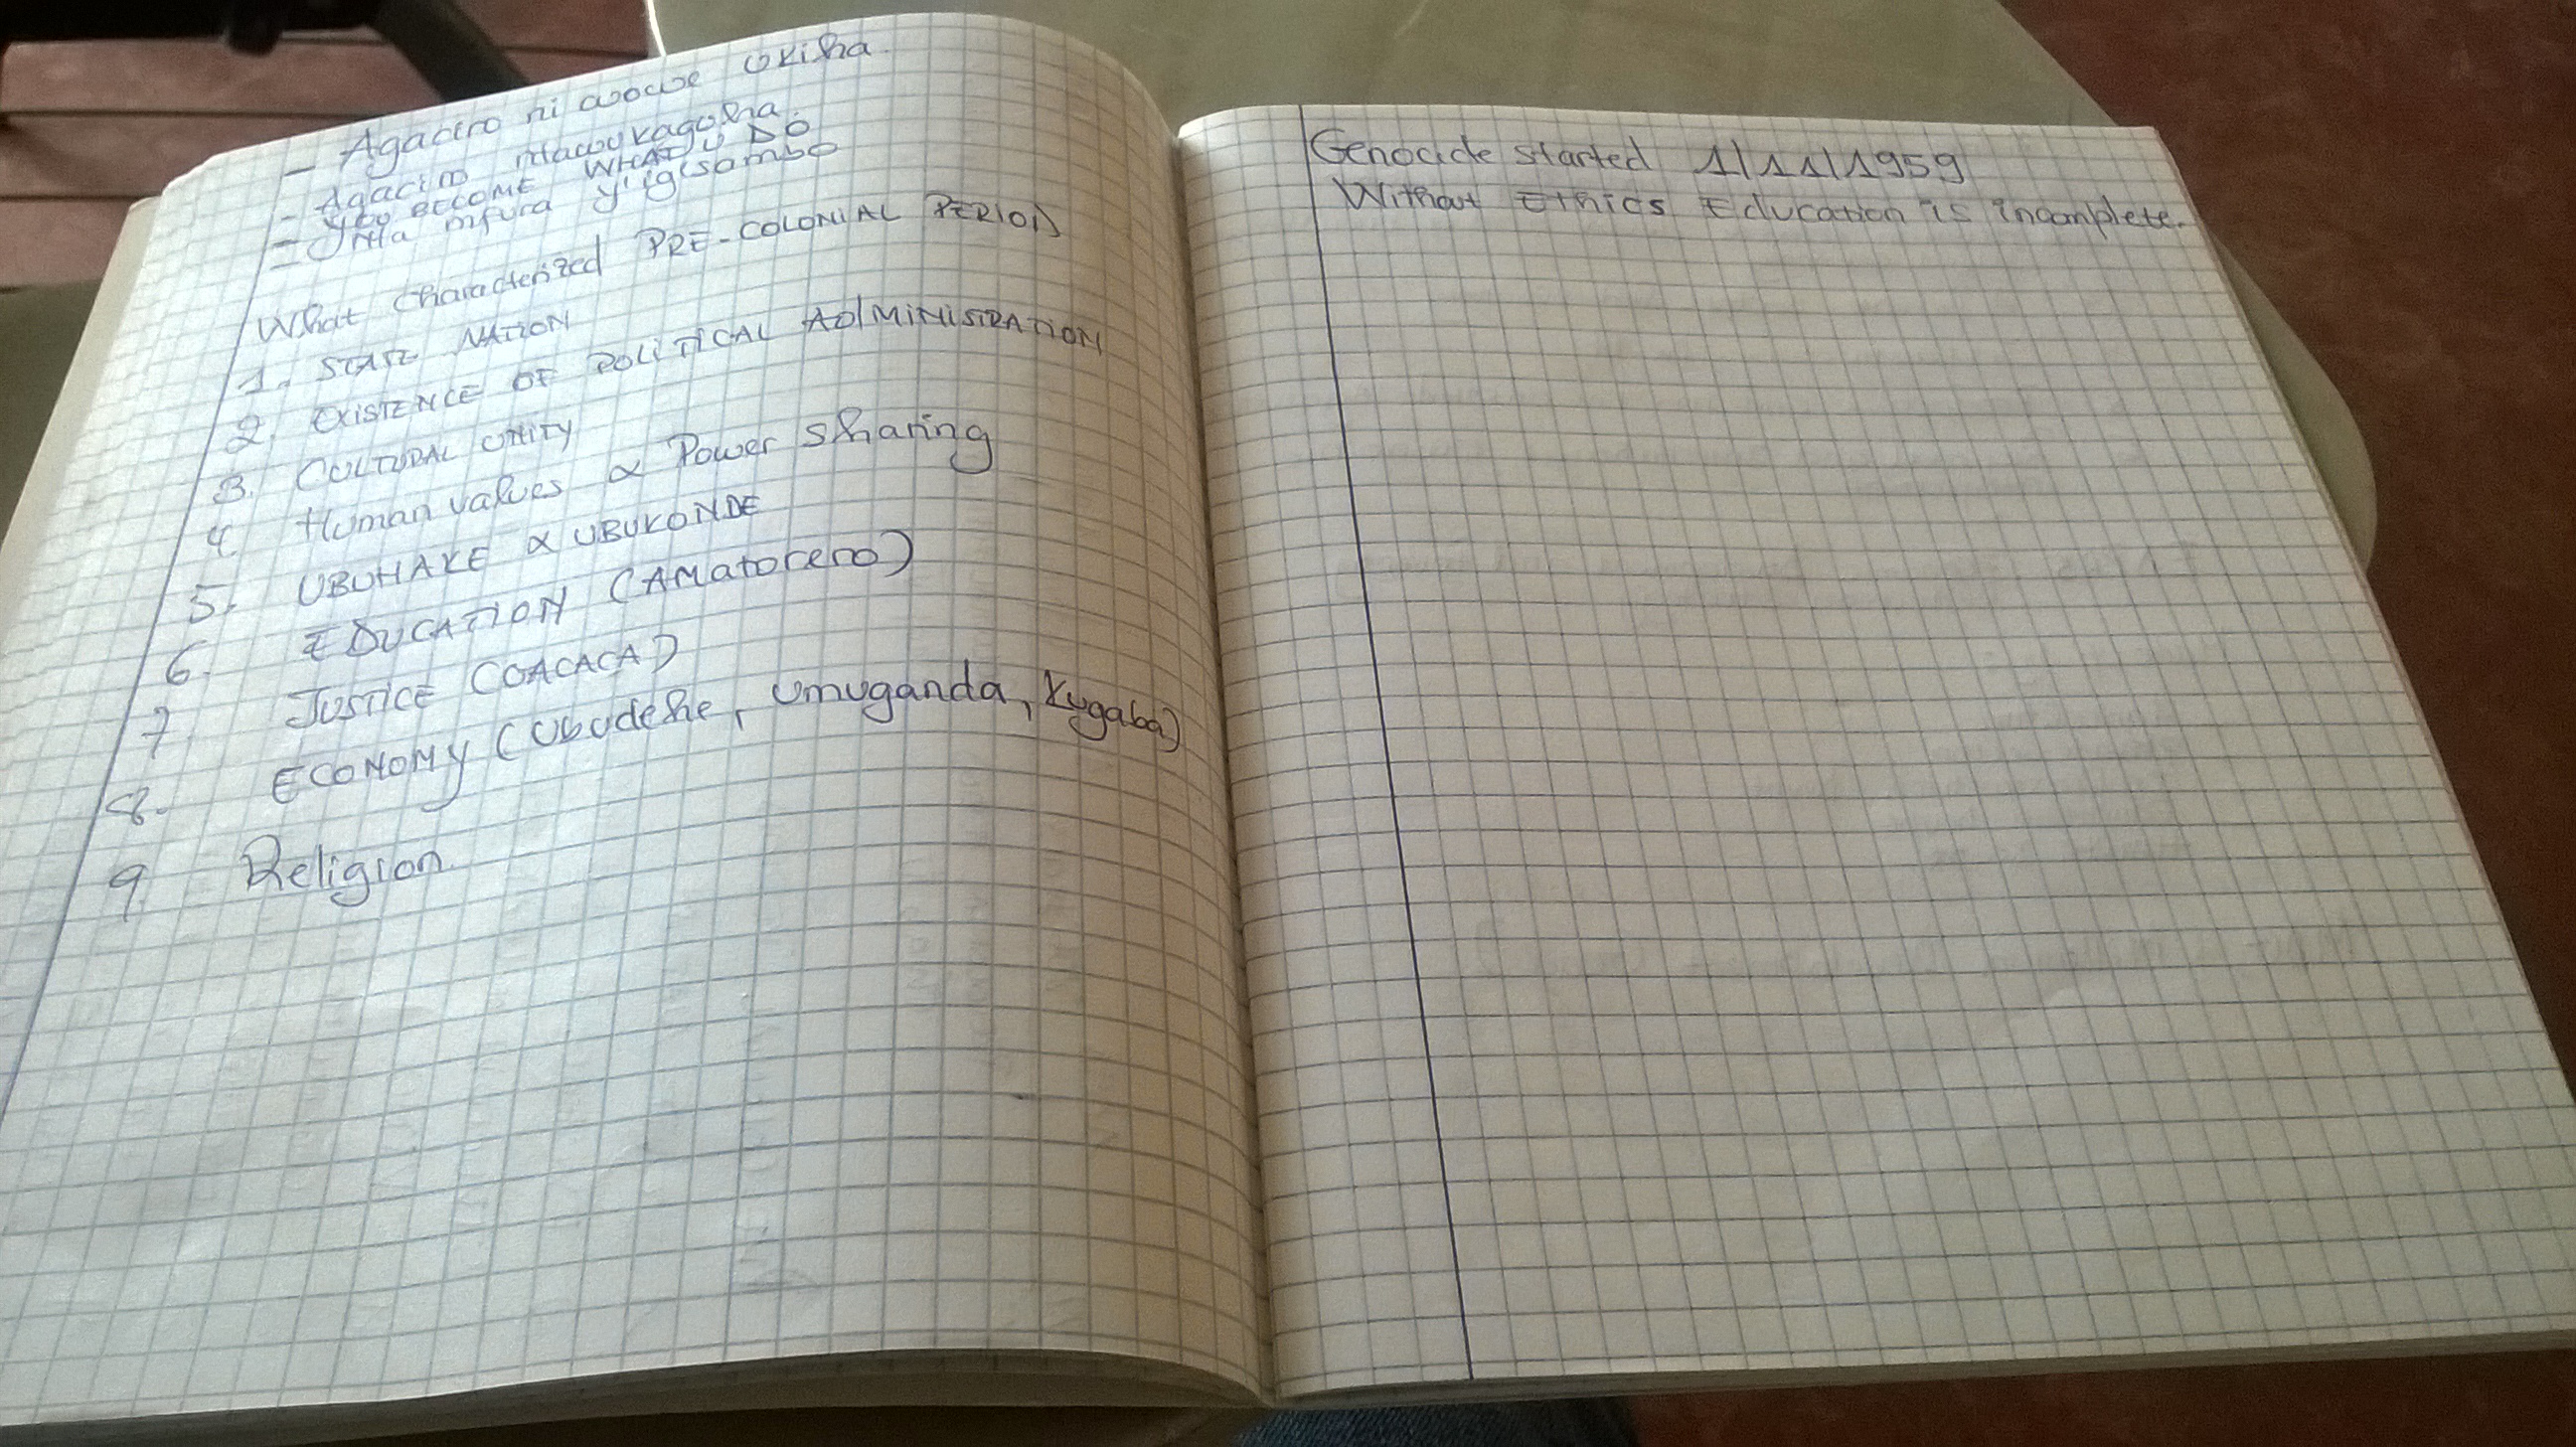 - Agaciro ni wowe ukiha.
- Agaciro ntawukaguha.
- YOU BECOME WHAT U DO
- Nta mfura y'igisambo
What characterized PRE-COLONIAL PERIOD
1. STATE NATION
2. EXISTENCE OF POLITICAL ADMINISTRATION
3. CULTURAL UNITY
4. Human values & Power sharing
5. UBUHAKE & UBUKONDE
6. EDUCATION (AMatorero)
7. JUSTICE (GACACA)
8. ECONOMY (Ubudehe, Umuganda, Kugaba)
9. Religion.
Genocide started 1/11/1959
Without Ethics Education is incomplete.